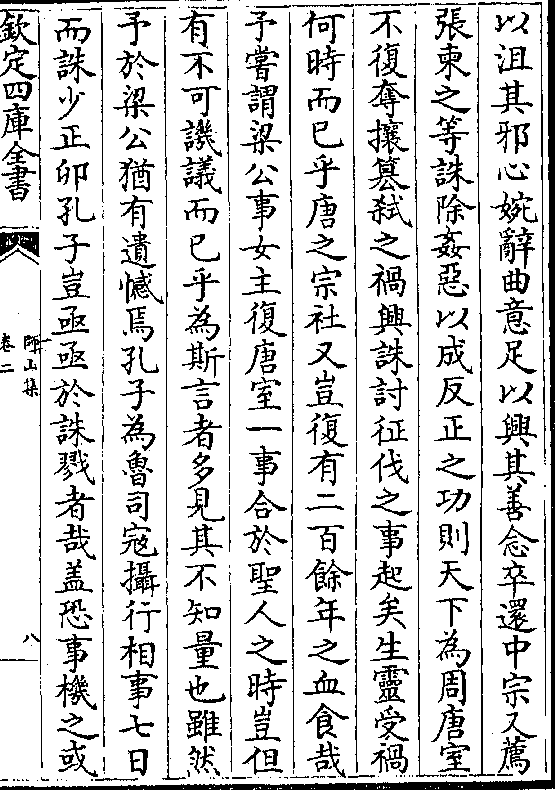 以沮其邪心婉辭曲意足以興其善念卒還中宗又薦
張柬之等誅除姦惡以成反正之功則天下為周唐室
不復奪攘簒弑之禍興誅討征伐之事起矣生靈受禍
何時而已乎唐之宗社又豈復有二百餘年之血食哉
予嘗謂梁公事女主復唐室一事合於聖人之時豈但
有不可譏議而已乎為斯言者多見其不知量也雖然
予於梁公猶有遺憾焉孔子為魯司寇攝行相事七日
而誅少正卯孔子豈亟亟於誅戮者哉盖恐事機之或
欽定四庫全書
師山集
卷二
八